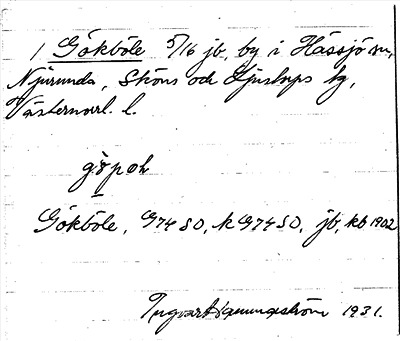 1 Gökböle 5/16 jb, by i Hässjö sn,
Njurunda, Sköns och Ljustorps tg,
Västernorrl. l.
Gökböle, G74 SO, k G74 SO, jb, kb 1902
Ingvar Hammarström 1931.